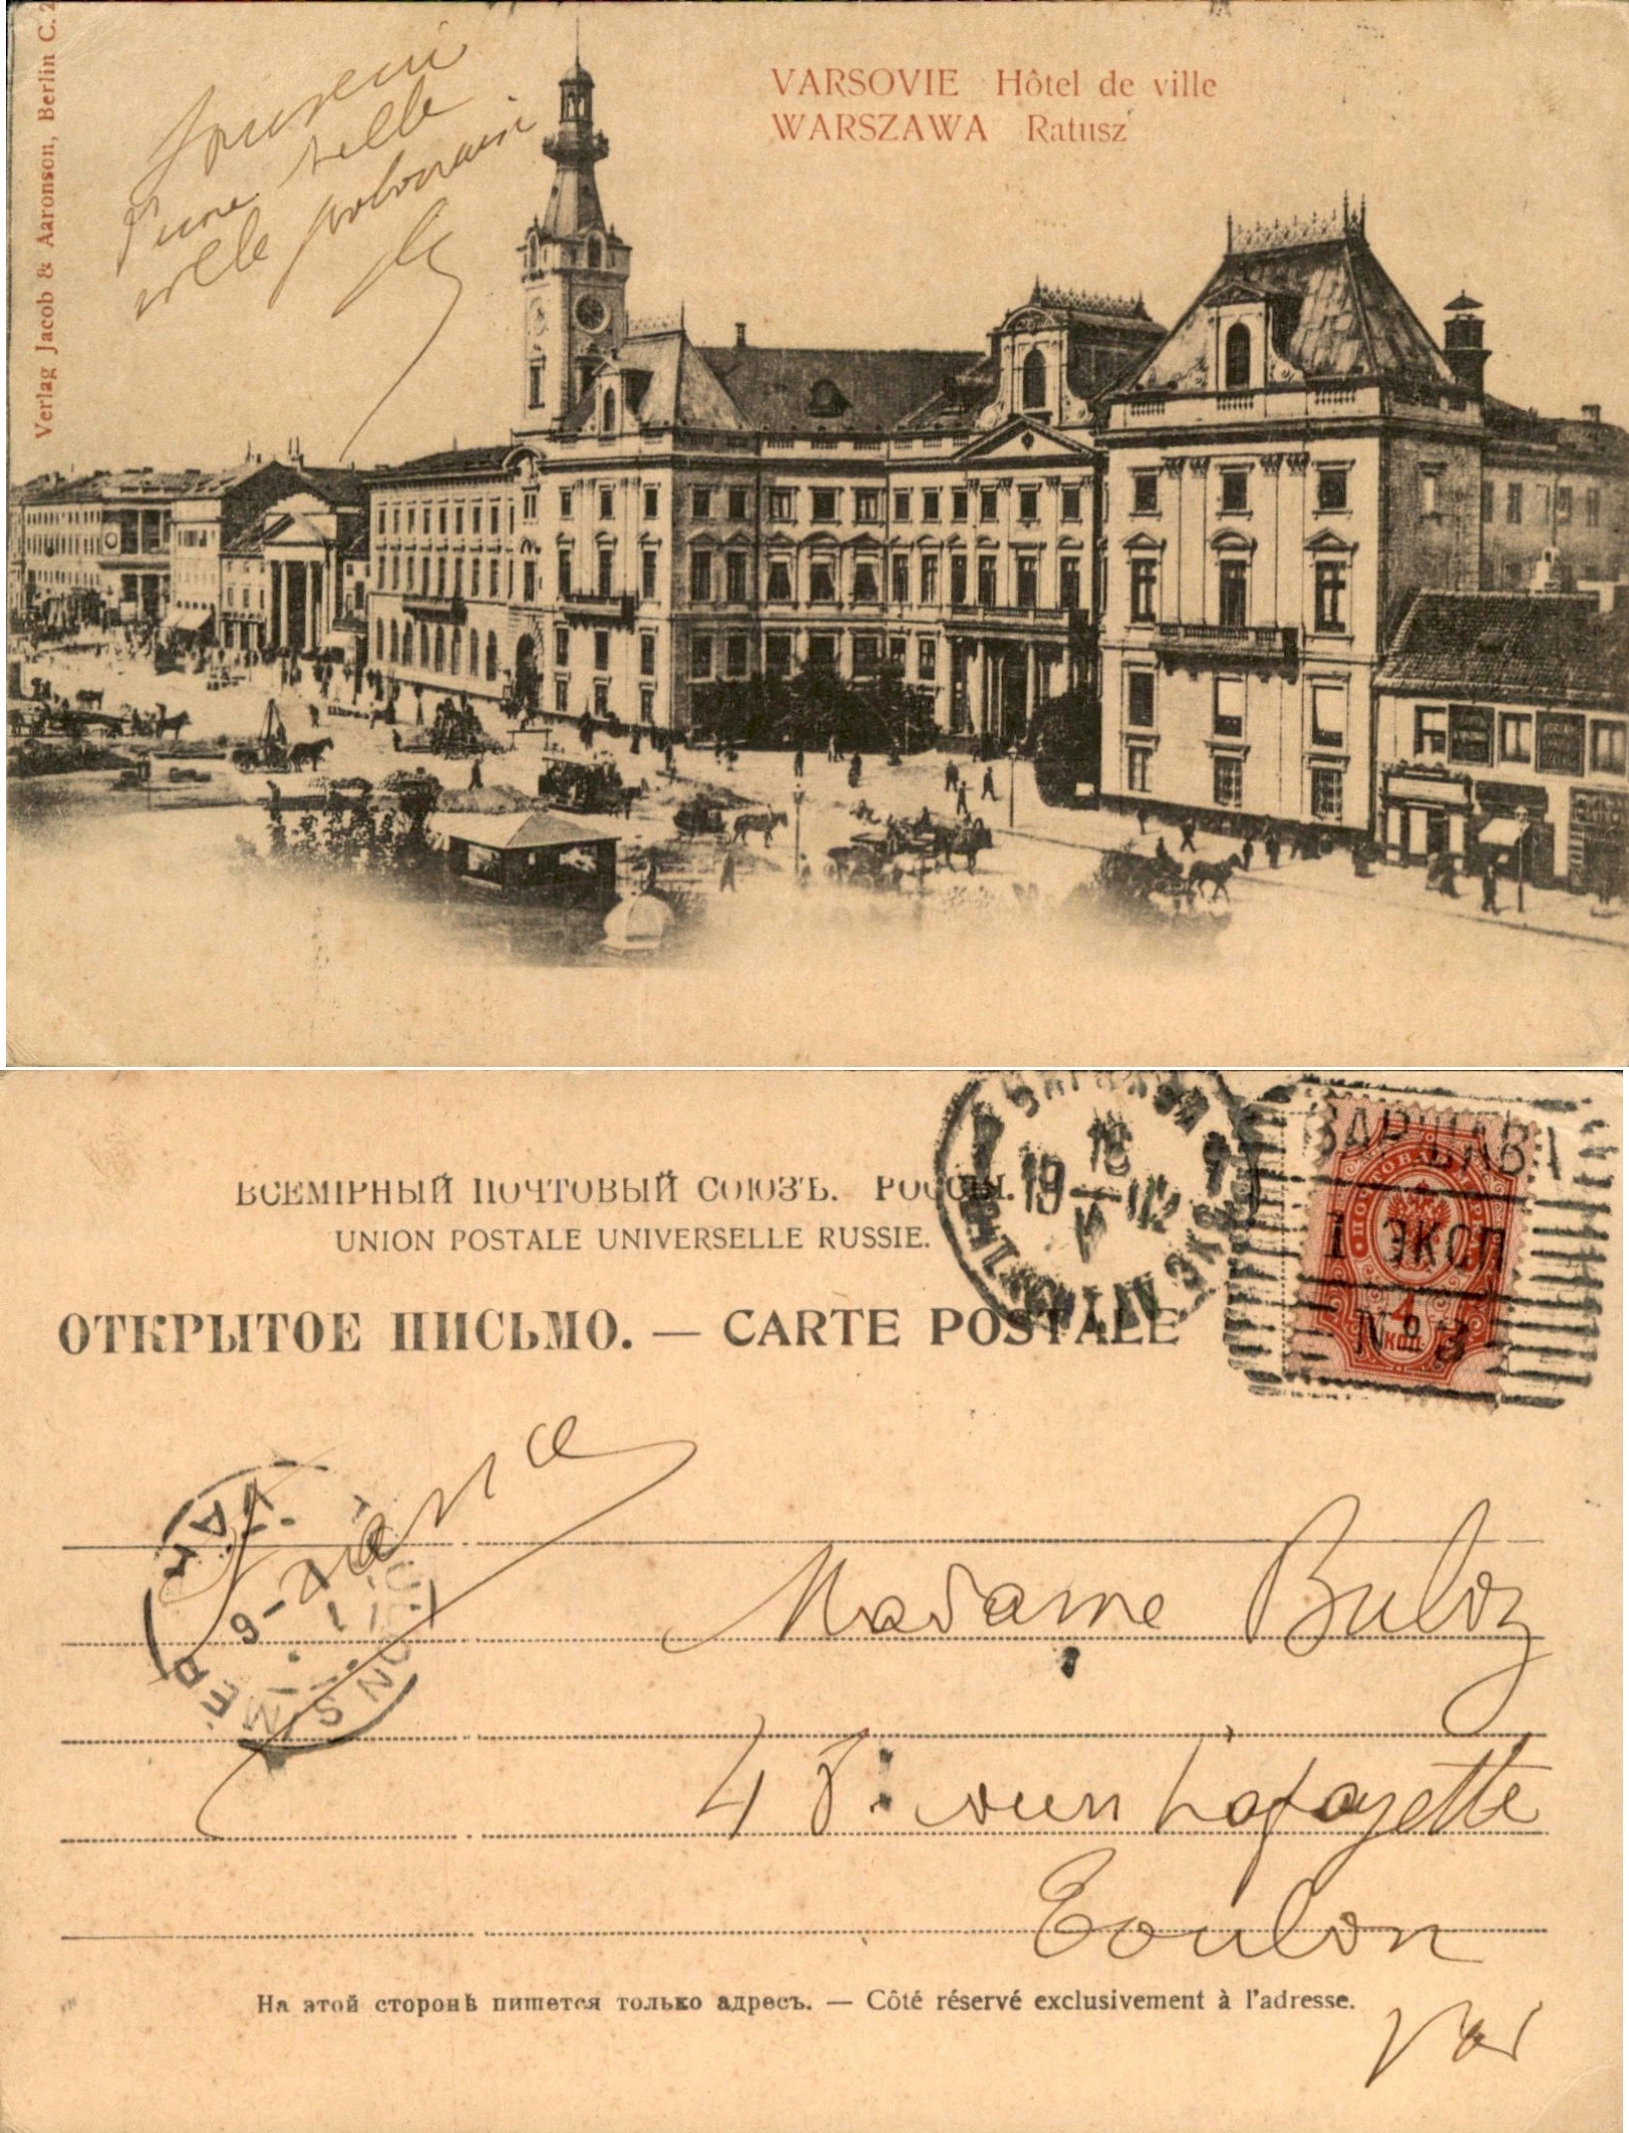 Verlag Jacob & Aaronson, Berlin C. 2
VARSOVIE Hôtel de ville
WARSZAWA Ratusz
Souvenir
d'une belle
ville polonaise
ВСЕМІРНЫЙ ПОЧТОВЫЙ СОЮЗЪ. РОССІЯ.
UNION POSTALE UNIVERSELLE RUSSIE.
ОТКРЫТОЕ ПИСЬМО. — CARTE POSTALE
ВАРШАВА
1 ЭКСП
№ 3
1
КОП.
18
19
V
TOULON S MER
VAR
France
Madame Buloz
Lafayette
Toulon
На этой сторонѣ пишется только адресъ. — Côté réservé exclusivement à l'adresse.
Var